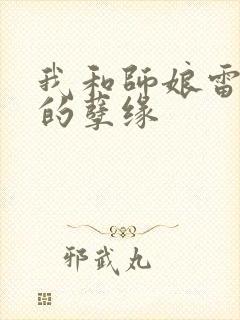 我和師娘雷
的孽缘
邪武丸